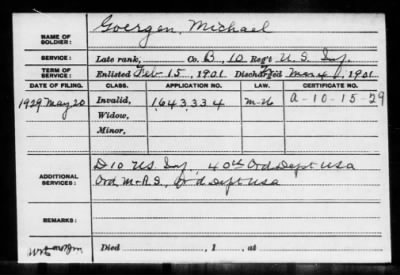 NAME OF SOLDIER: Goergen, Michael
SERVICE: Late rank, Co. B, 10 Reg't U.S. Inf.
TERM OF SERVICE: Enlisted Feb 15, 1901 Discharged Mar 4, 1901
DATE OF FILING. CLASS. APPLICATION NO. LAW. CERTIFICATE NO.
1929 May 20 Invalid, 1643334 A-10-15-29
Widow,
Minor,
ADDITIONAL SERVICES: D 10 U.S. Inf., 40th Ord Dept USA
Ord Dept USA
REMARKS:
Died , 1 , at